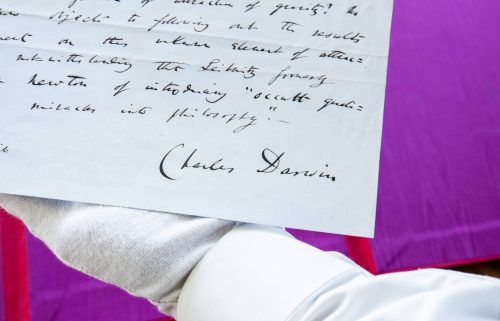 of attraction of gravity? No
now objects to following out the results
on this unknown element of attrac=
notwithstanding that Leibnitz formerly
Newton of introducing "occult quali=
miracles into philosophy".—
Charles Darwin